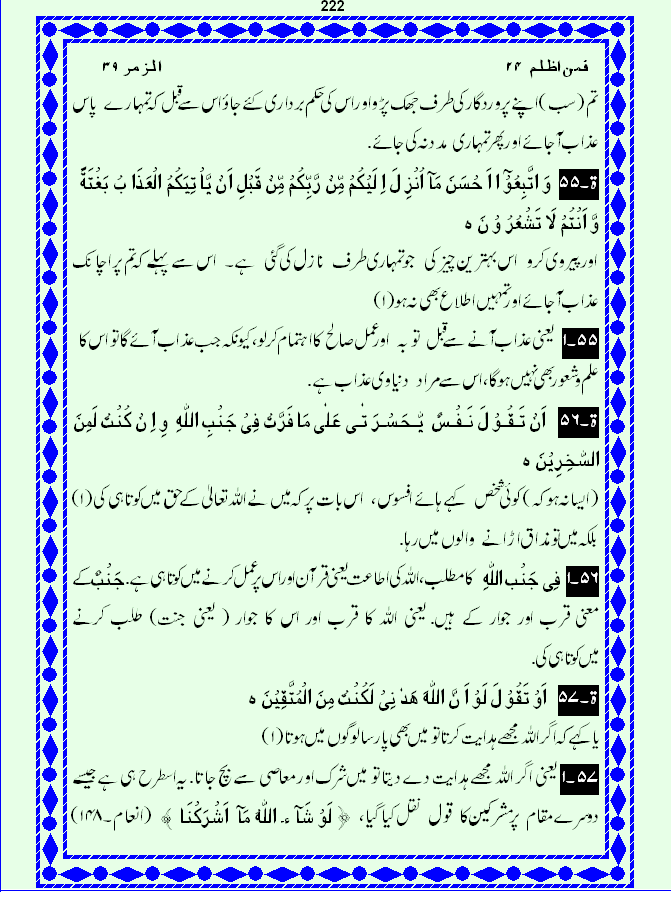 222
فمن اظلم ۲۴ الزمر ۳۹
تم (سب) اپنے پروردگار کی طرف جھک پڑو اور اس کی حکم برداری کئے جاؤ اس سے قبل کہ تمہارے پاس
عذاب آ جائے اور پھر تمہاری مدد نہ کی جائے۔
ۃ۔۵۵ وَ اتَّبِعُوْٓا اَحْسَنَ مَآ اُنْزِ لَ اِلَيْكُمْ مِّنْ رَّبِّكُمْ مِّنْ قَبْلِ اَنْ يَّاْتِيَكُمُ الْعَذَا بُ بَغْتَةً
وَّ اَنْتُمْ لَا تَشْعُرُ وْ نَ ہ
اور پیروی کرو اس بہترین چیز کی جو تمہاری طرف نازل کی گئی ہے۔ اس سے پہلے کہ تم پر اچانک
عذاب آ جائے اور تمہیں اطلاع بھی نہ ہو (۱)
۵۵۔۱ یعنی عذاب آنے سے قبل توبہ اور عمل صالح کا اہتمام کر لو، کیونکہ جب عذاب آئے گا تو اس کا
علم و شعور بھی نہیں ہوگا، اس سے مراد دنیاوی عذاب ہے۔
ۃ۔۵۶ اَنْ تَقُوْ لَ نَفْسٌ يّٰحَسْرَ تٰى عَلٰى مَا فَرَّتُّ فِىْ جَنْۢبِ اللّٰهِ وَ اِ نْ كُنْتُ لَمِنَ
السّٰخِرِيْنَ ہ
(ایسا نہ ہو کہ) کوئی شخص کہے ہائے افسوس، اس بات پر کہ میں نے اللہ تعالیٰ کے حق میں کوتاہی کی (۱)
بلکہ میں تو مذاق اڑانے والوں میں رہا۔
۵۶۔۱ فِى جَنْۢبِ اللّٰهِ کا مطلب، اللہ کی اطاعت یعنی قرآن اور اس پر عمل کرنے میں کوتاہی ہے۔ جَنْۢبٌ کے
معنی قرب اور جوار کے ہیں۔ یعنی اللہ کا قرب اور اس کا جوار (یعنی جنت) طلب کرنے
میں کوتاہی کی۔
ۃ۔۵۷ اَوْ تَقُوْ لَ لَوْ اَ نَّ اللّٰهَ هَدٰ نِىْ لَكُنْتُ مِنَ الْمُتَّقِيْنَ ہ
یا کہے کہ اگر اللہ مجھے ہدایت کرتا تو میں بھی پارسا لوگوں میں ہوتا (۱)
۵۷۔۱ یعنی اگر اللہ مجھے ہدایت دے دیتا تو میں شرک اور معاصی سے بچ جاتا۔ یہ اسطرح ہی ہے جیسے
دوسرے مقام پر مشرکین کا قول نقل کیا گیا، ﴿ لَوْ شَآ ءَ اللّٰهُ مَآ اَشْرَكْنَا ﴾ (انعام۔۱۴۸)